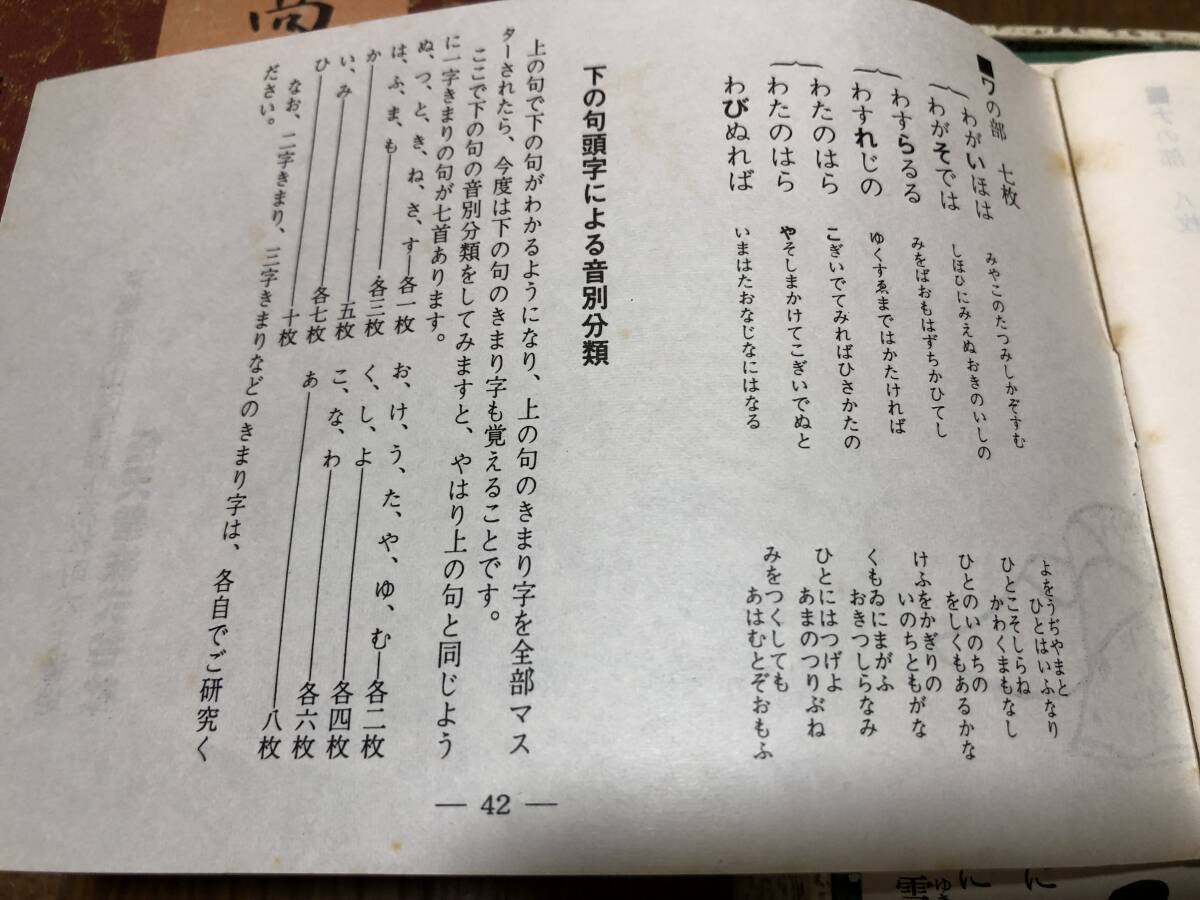 ■ワの部 七枚
わがいほは みやこのたつみしかぞすむ よをうぢやまと ひとはいふなり
わがそでは しほひにみえぬおきのいしの ひとこそしらね かわくまもなし
わすらるる みをばおもはずちかひてし ひとのいのちの をしくもあるかな
わすれじの ゆくすゑまではかたければ けふをかぎりの いのちともがな
わたのはら こぎいでてみればひさかたの くもゐにまがふ おきつしらなみ
わたのはら やそしまかけてこぎいでぬと ひとにはつげよ あまのつりぶね
わびぬれば いまはたおなじなにはなる みをつくしても あはむとぞおもふ
下の句頭字による音別分類
上の句で下の句がわかるようになり、上の句のきまり字を全部マス
ターされたら、今度は下の句のきまり字も覚えることです。
ここで下の句の音別分類をしてみますと、やはり上の句と同じよう
に一字きまりの句が七首あります。
ぬ、つ、と、き、ね、さ、す―各一枚 お、け、う、た、や、ゆ、む―各二枚
は、ふ、ま、も―各三枚 く、し、よ―各四枚
か―五枚 こ、な、わ―各六枚
い、み―各七枚 あ―八枚
ひ―十枚
なお、二字きまり、三字きまりなどのきまり字は、各自でご研究く
ださい。
― 42 ―